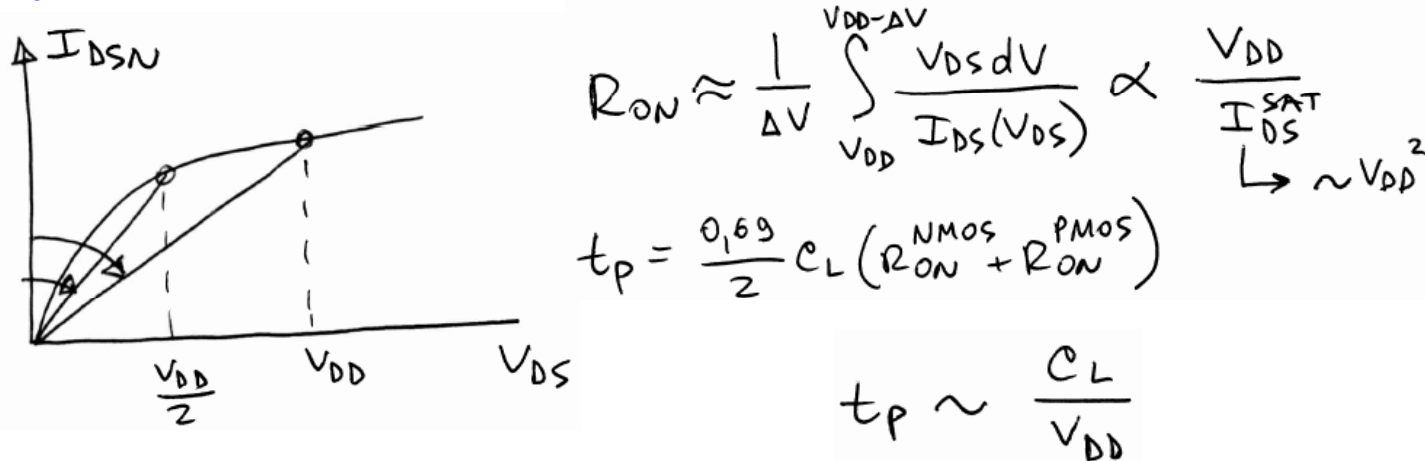 I_DSN
V_DD/2
V_DD
V_DS
R_ON ≈ 1/ΔV ∫_{V_DD}^{V_DD-ΔV} V_DS dV / I_DS(V_DS) ∝ V_DD / I_DS^SAT
↳ ~ V_DD^2
t_p = 0,69/2 C_L (R_ON^NMOS + R_ON^PMOS)
t_p ~ C_L / V_DD